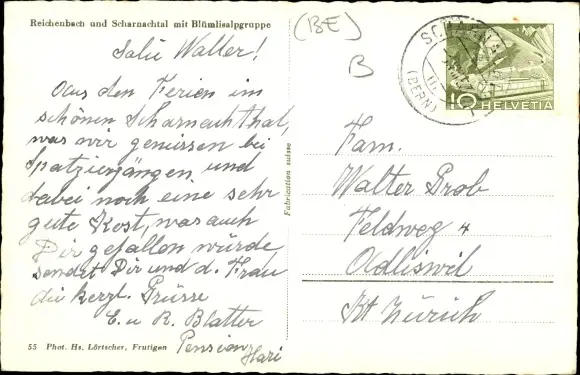 Reichenbach und Scharnachtal mit Blümlisalpgruppe
Salü Walter!
Aus den Ferien im
schönen Scharnachthal,
was wir geniessen bei
Spatziergängen und
dabei noch eine sehr
gute Kost, was auch
Dir gefallen würde
sendet Dir und d. Frau
die herzl. Grüsse
E. u R. Blatter
Pension Hari
55 Phot. Hs. Lörtscher, Frutigen
Fabrication suisse
(BE)
B
(BERN)
10 HELVETIA
Fam.
Walter Prob
Feldweg 4
Adliswil
Kt Zürich